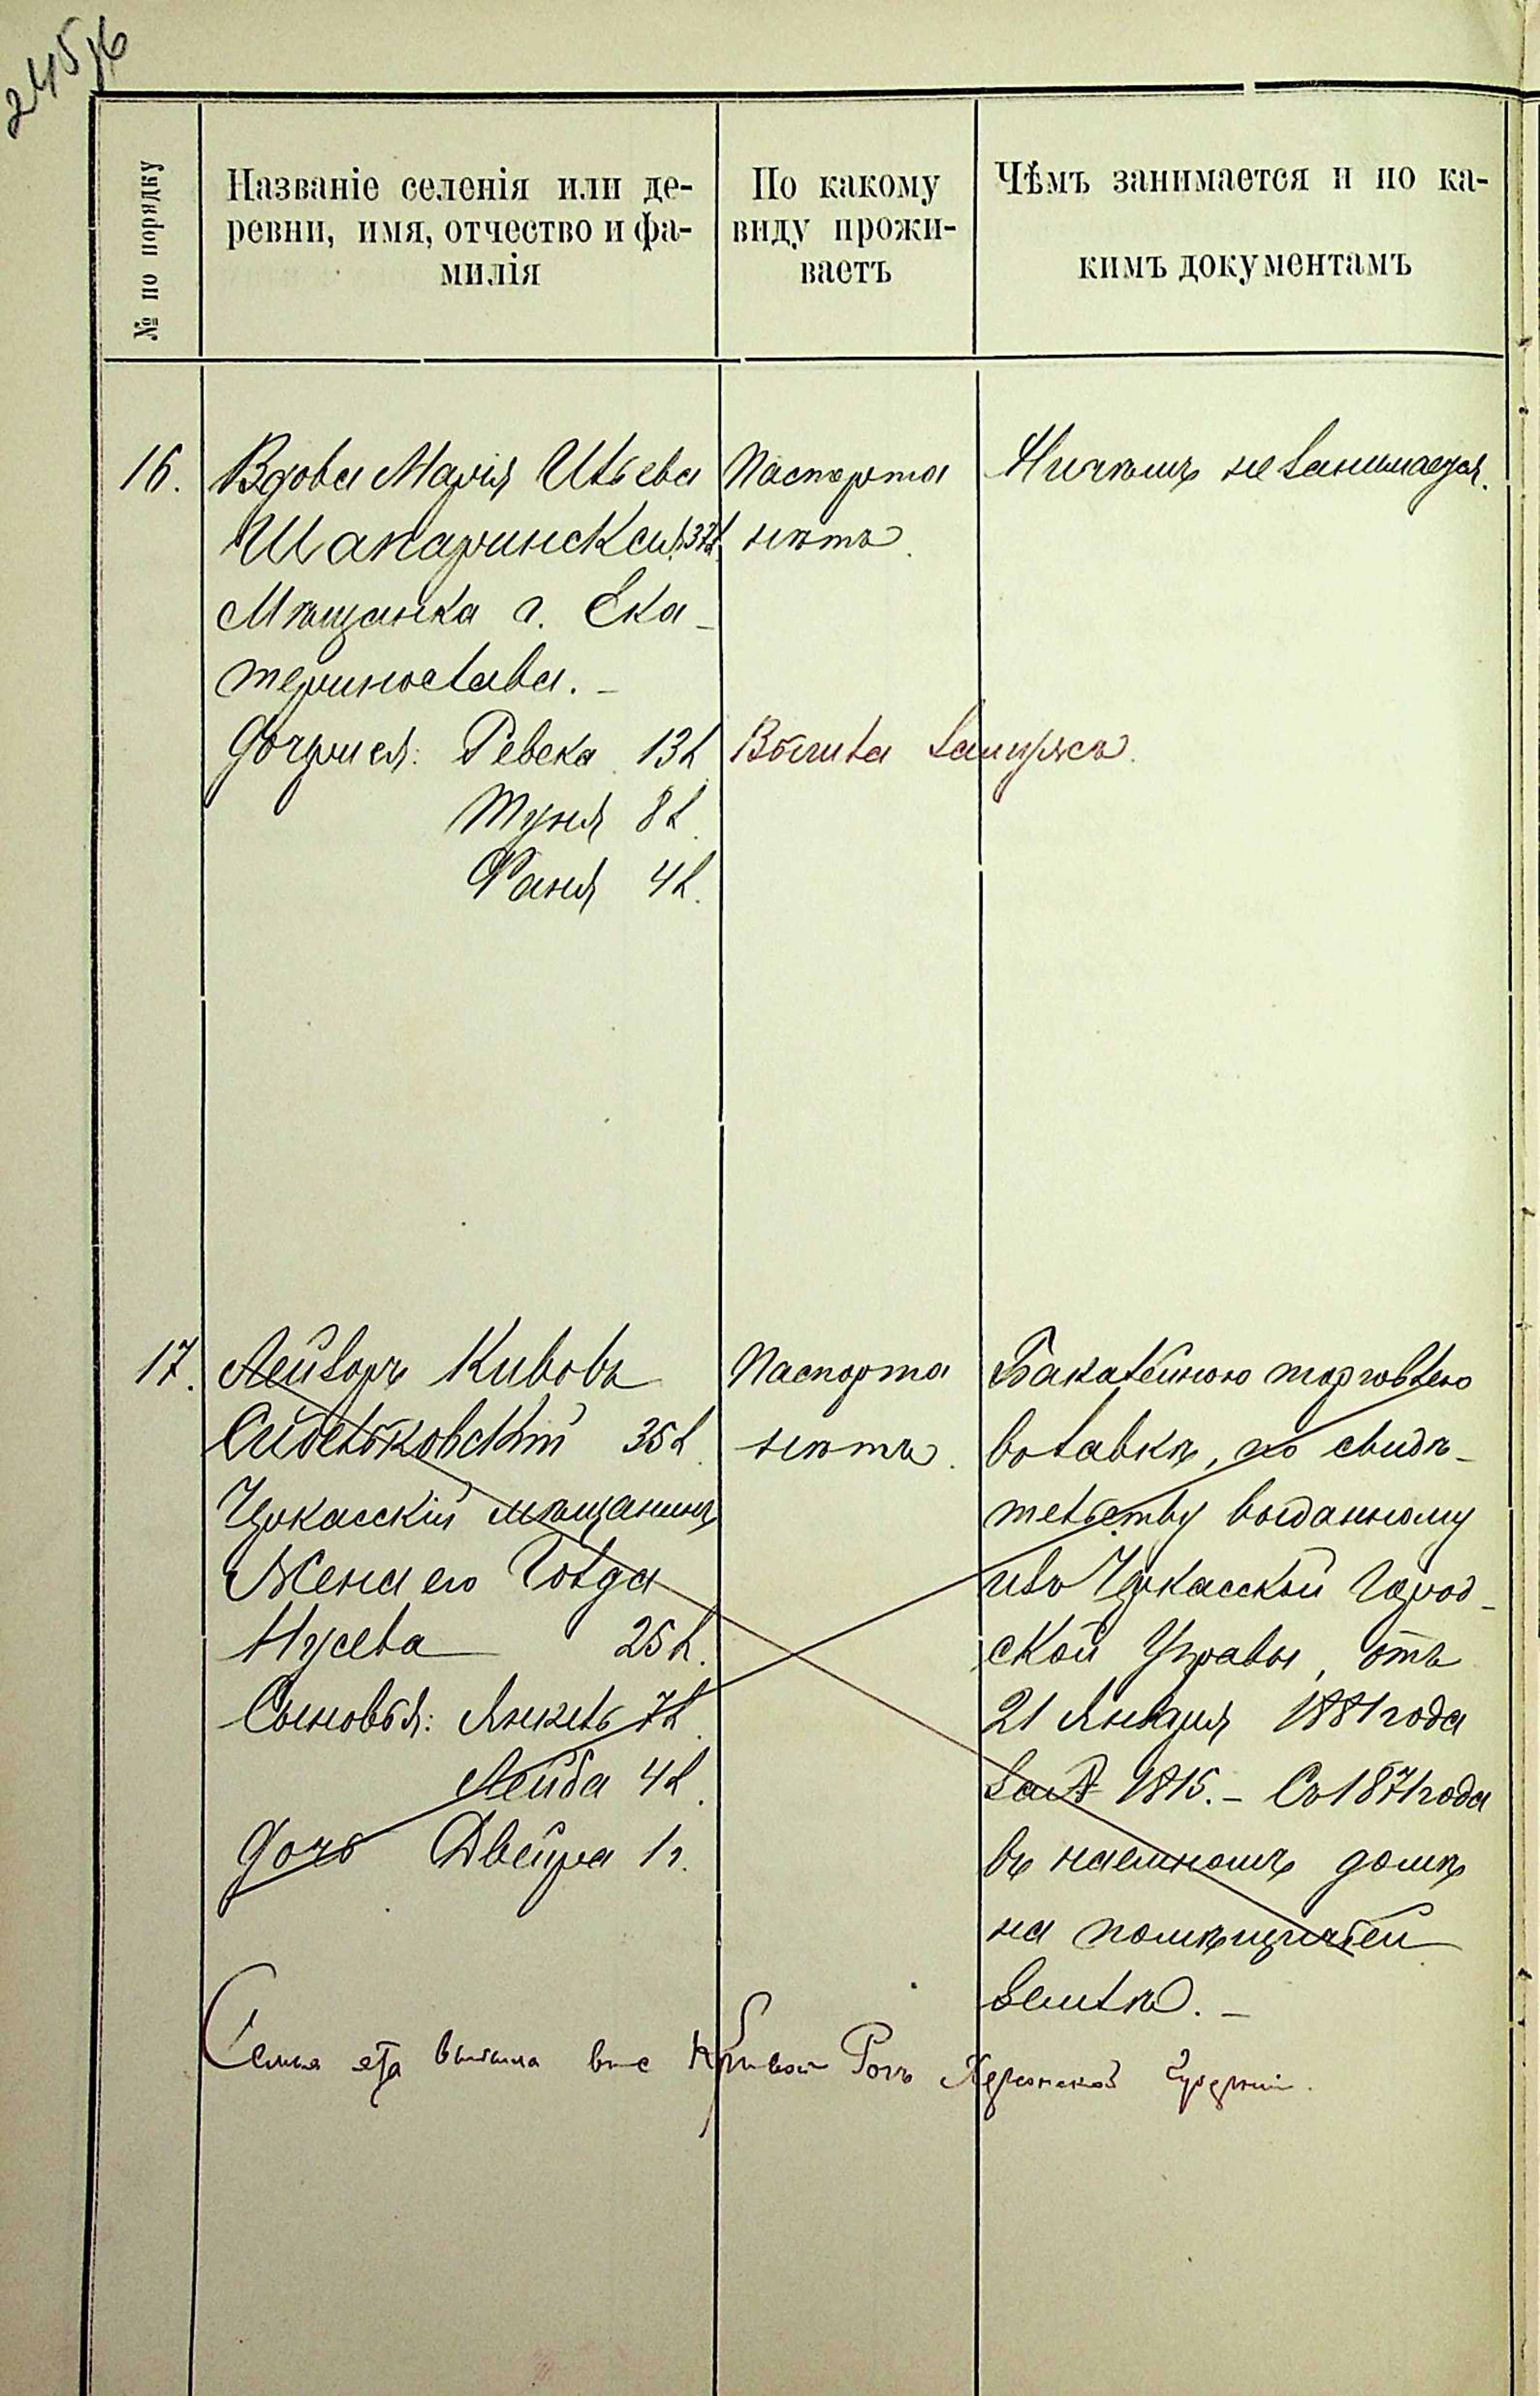 245 об
№ по порядку
Названіе селенія или де-
ревни, имя, отчество и фа-
милія
По какому
виду прожи-
ваетъ
Чѣмъ занимается и по ка-
кимъ документамъ
16.
Вдова Марія Ильева
Шапаринская 37 л.
Мѣщанка г. Ека-
теринослава. –
Дочери ея: Ревека 13 л.
Туня 8 л.
Фаня 4 л.
Паспорта
нѣтъ.
Вышла замужъ.
Ничѣмъ не занимается.
17.
Лейзоръ Кивовъ
Сидельковскій 35 л.
Черкасскій мѣщанинъ
Жена его Голда
Нусева 25 л.
Сыновья: Янкель 7 л.
Лейба 4 л.
Дочь Двейра 1 г.
Паспорта
нѣтъ.
Бакалейною торговлею
въ лавкѣ, по свидѣ-
тельству выданному
изъ Черкасской Город-
ской Управы, отъ
21 Января 1881 года
за № 1815. – Съ 1871 года
въ наемномъ домѣ
на помѣщичьей
землѣ. –
Семья эта выбыла въ с Кривой Рогъ Херсонской Губерніи.